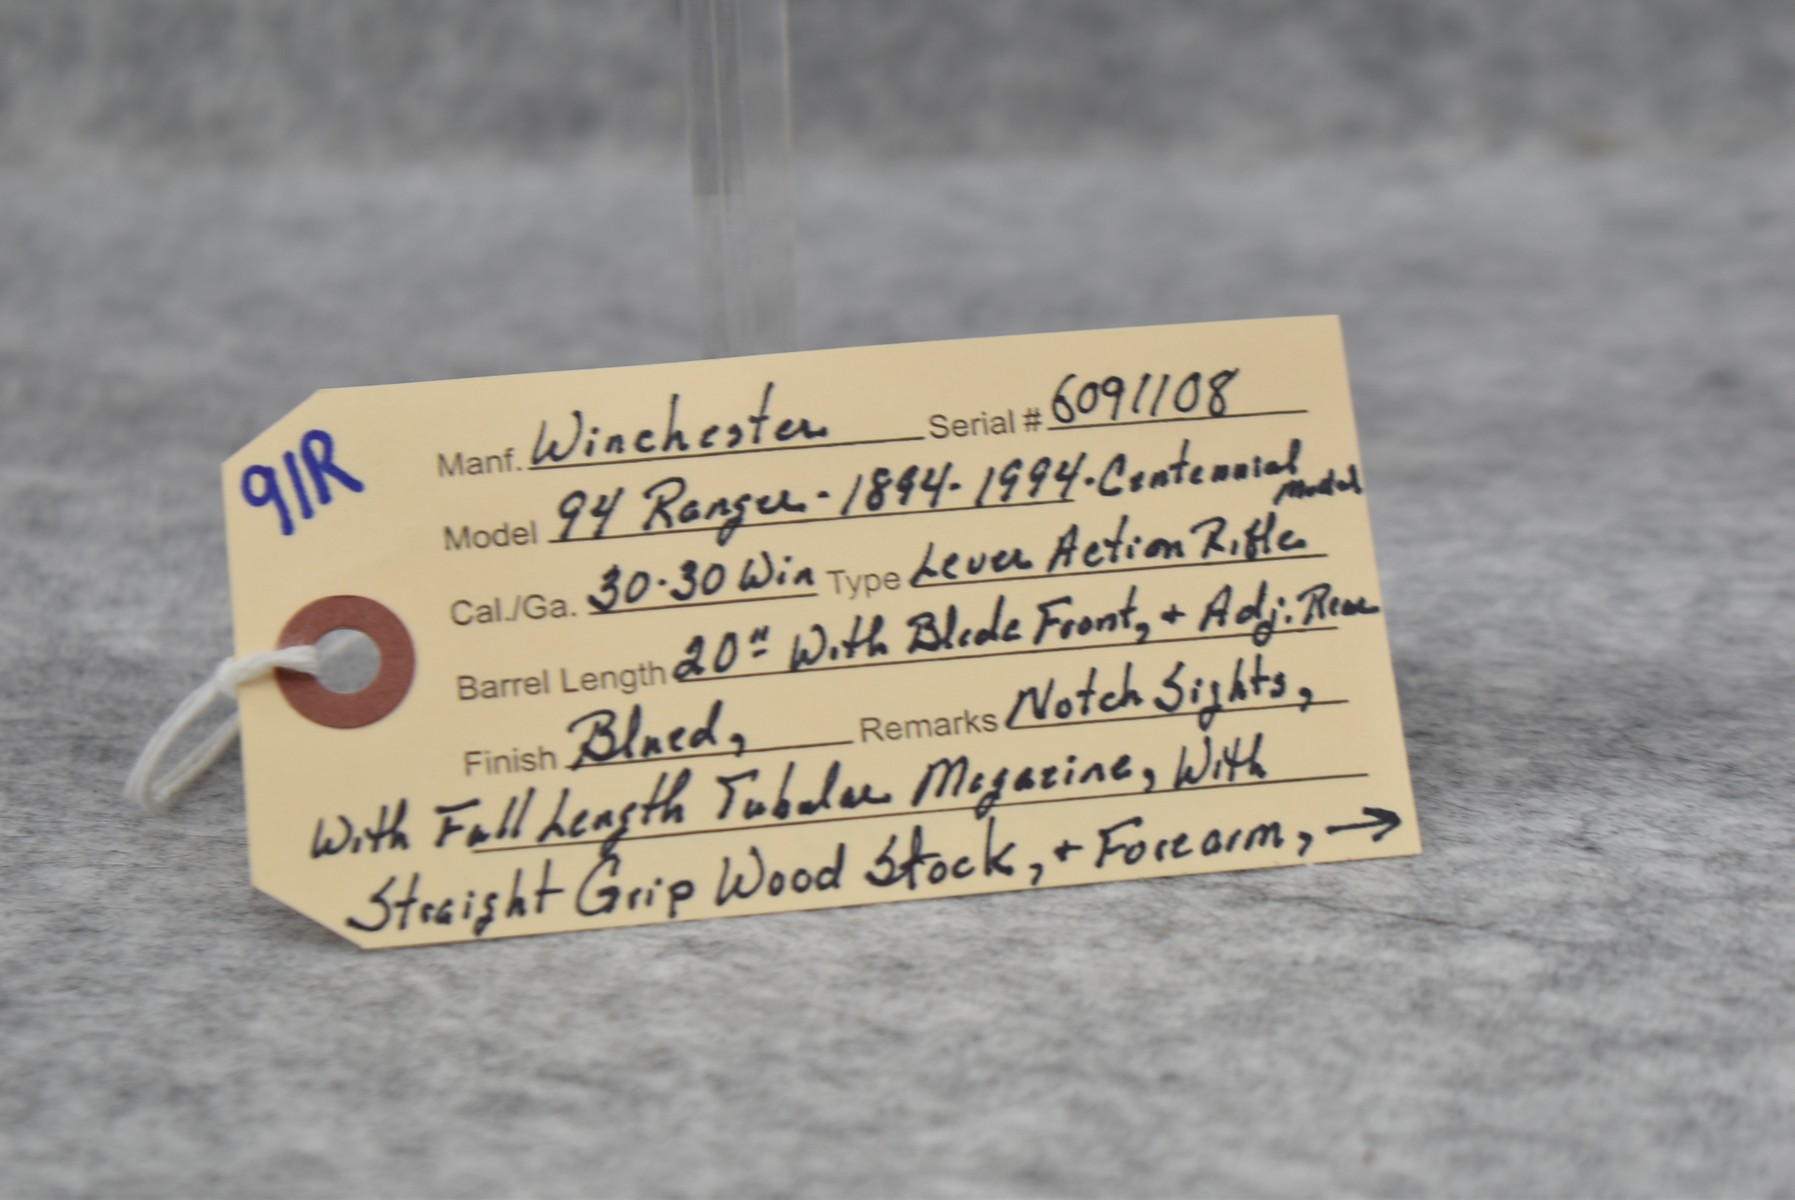 91R
Manf. Winchester Serial # 6091108
Model 94 Ranger - 1894 - 1994 - Centennial Model
Cal./Ga. 30-30 Win Type Lever Action Rifle
Barrel Length 20" With Blade Front, + Adj. Rear
Finish Blued, Remarks Notch Sights,
With Full Length Tubular Magazine, With
Straight Grip Wood Stock, + Forearm, →